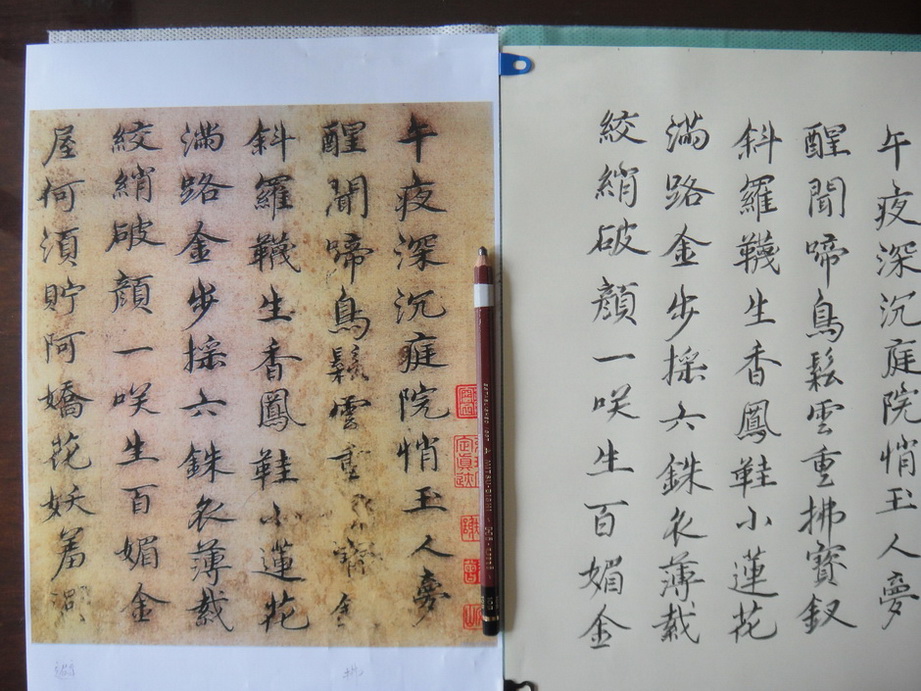 午夜深沉庭院悄玉人夢
醒聞啼鳥鬆雲重寶
斜羅韈生香鳳鞋小蓮花
滿路金步搖六銖衣薄裁
絞綃破顏一咲生百媚金
屋何須貯阿嬌花妖羞
午夜深沉庭院悄玉人夢
醒聞啼鳥鬆雲重拂寶釵
斜羅韈生香鳳鞋小蓮花
滿路金步搖六銖衣薄裁
絞綃破顏一咲生百媚金